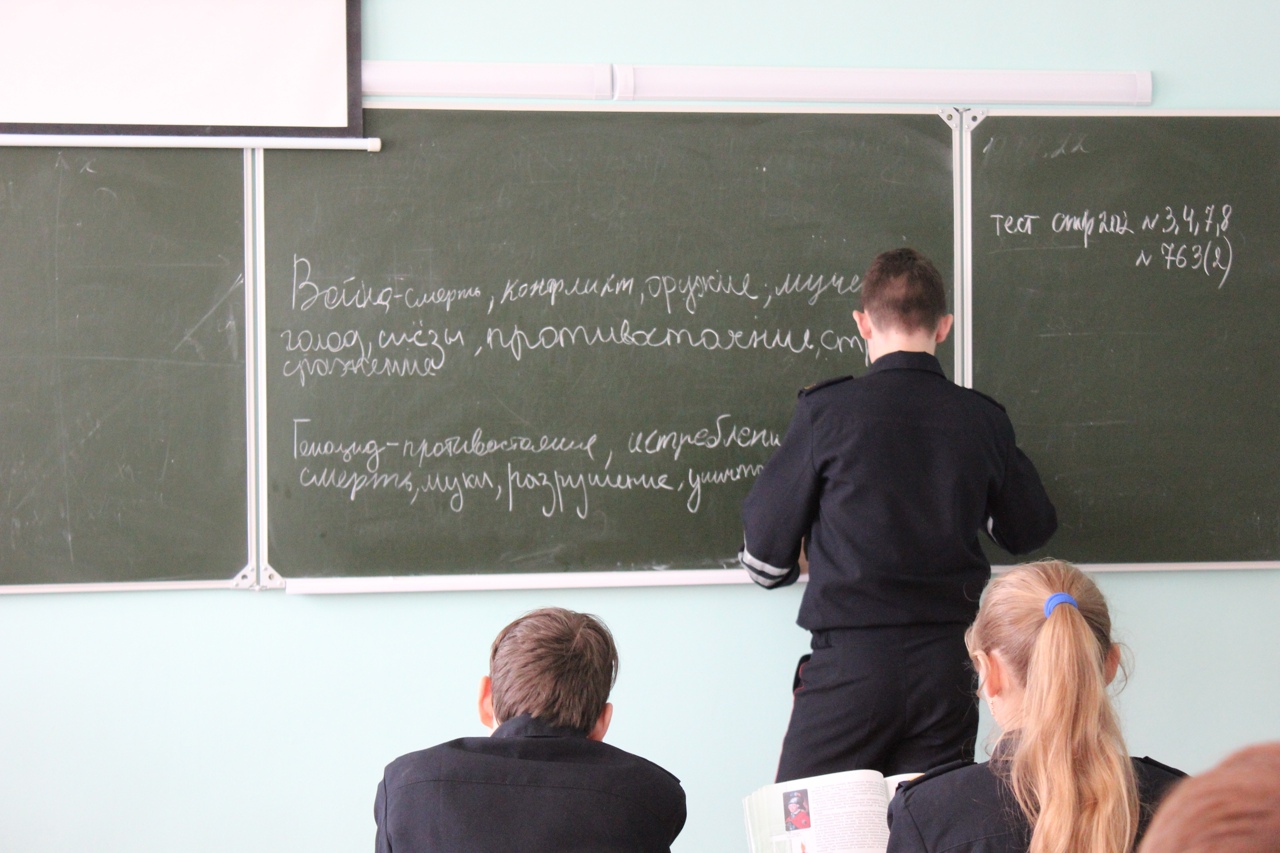 Война-смерть, конфликт, оружие, муче
голод, слёзы, противостояние, ст
сражения
Геноцид-противостояние, истреблени
смерть, муки, разрушение, уничто
тест стр 202 N 3,4,7,8
N 763(2)